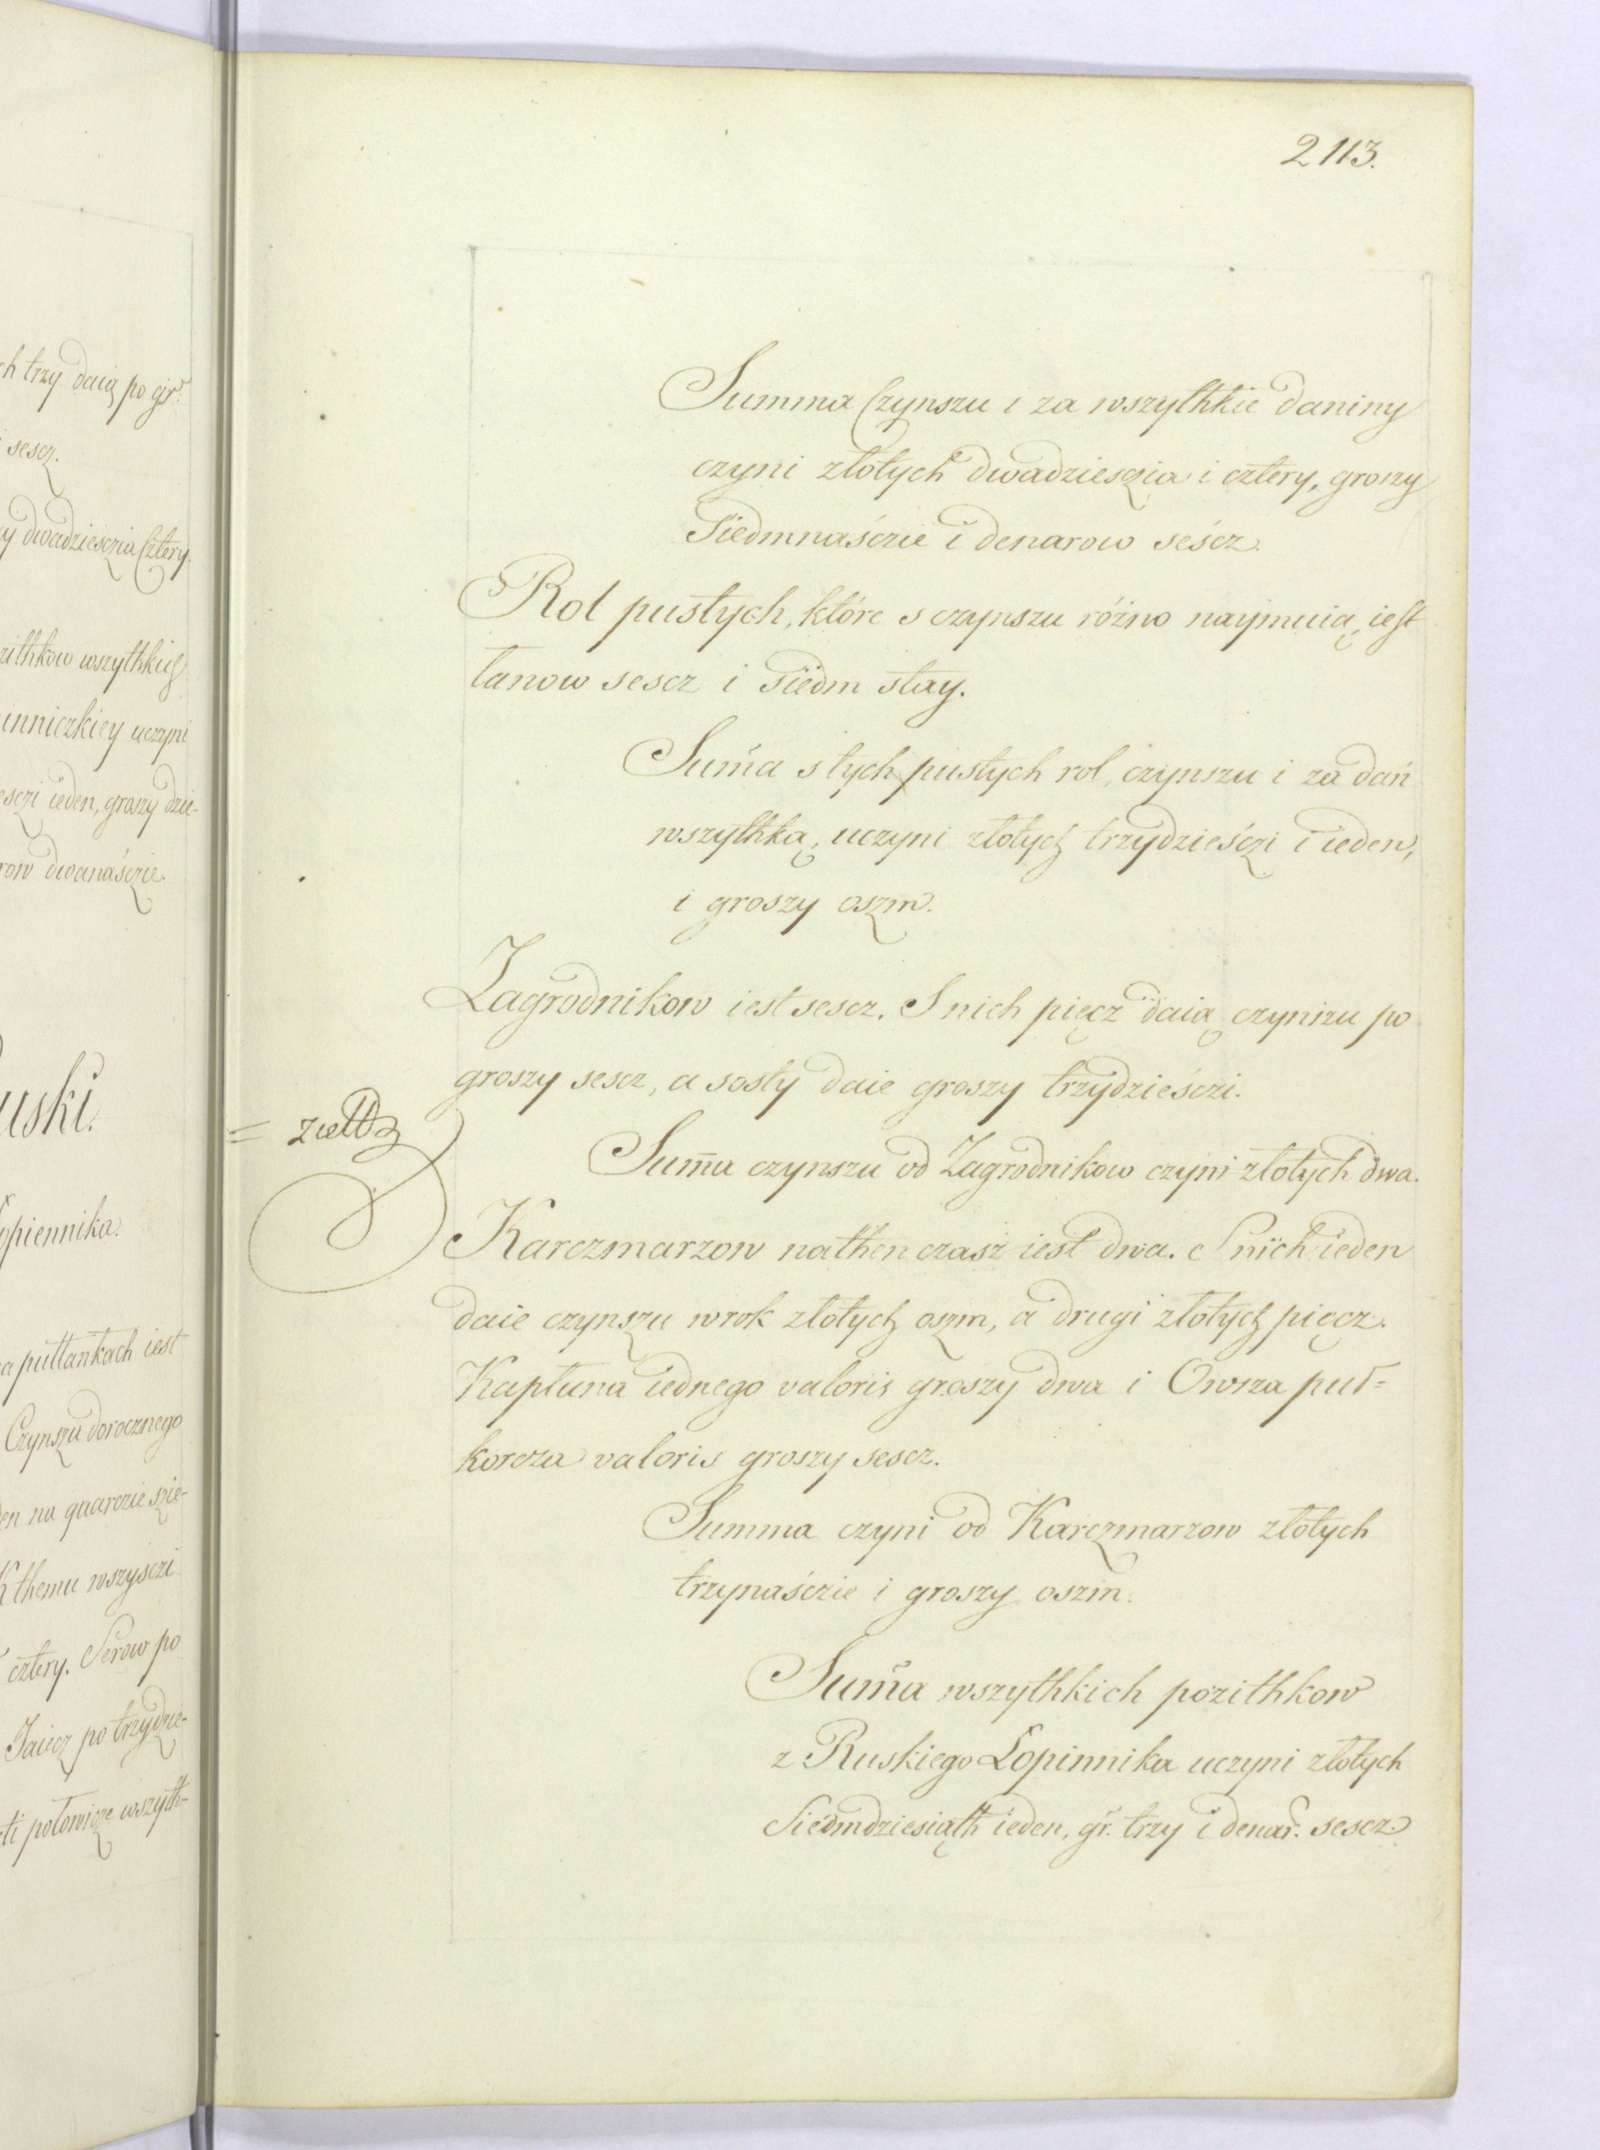 ch trzy daią po gr.
sescz.
dwadziesczia Cztery.
wszythkich
uczyni
ieden, groszy dzie-
dwanaśczie.
uski.
opiennika.
pułłankach iest
Czynszu dorocznego
na quarczie szie-
K themu wszysczi
cztery. Serow po
Jaiecz po trzydzie-
połowicze wszyth-
2113.
Summa Czynszu i za wszythkie daniny
czyni złotych dwadziesczia i cztery, groszy
Siedmnaśczie i denarow seścz.
Rol pustych, które s czynszu różno naymuią, iest
łanow sescz i siedm stay.
Sum̃a s tych pustych rol, czynszu i za dań
wszythką, uczyni złotych trzydzieśczi i ieden,
i groszy oszm.
Zagrodnikow iest sescz. S nich pięcz daią czynszu po
groszy sescz, a sosty daie groszy trzydzieśczi.
Sum̃a czynszu od Zagrodnikow czyni złotych dwa.
Karczmarzow nathen czasz iest dwa. S nich ieden
daie czynszu w rok złotych oszm, a drugi złotych pięcz.
Kapłuna iednego valoris groszy dwa i Owsza puł=
korcza valoris groszy sescz.
Summa czyni od Karczmarzow złotych
trzynaśczie i groszy oszm.
Sum̃a wszythkich pozithkow
z Ruskiego Łopinnika uczyni złotych
Siedmdziesiąth ieden, gr. trzy i denar. sescz.